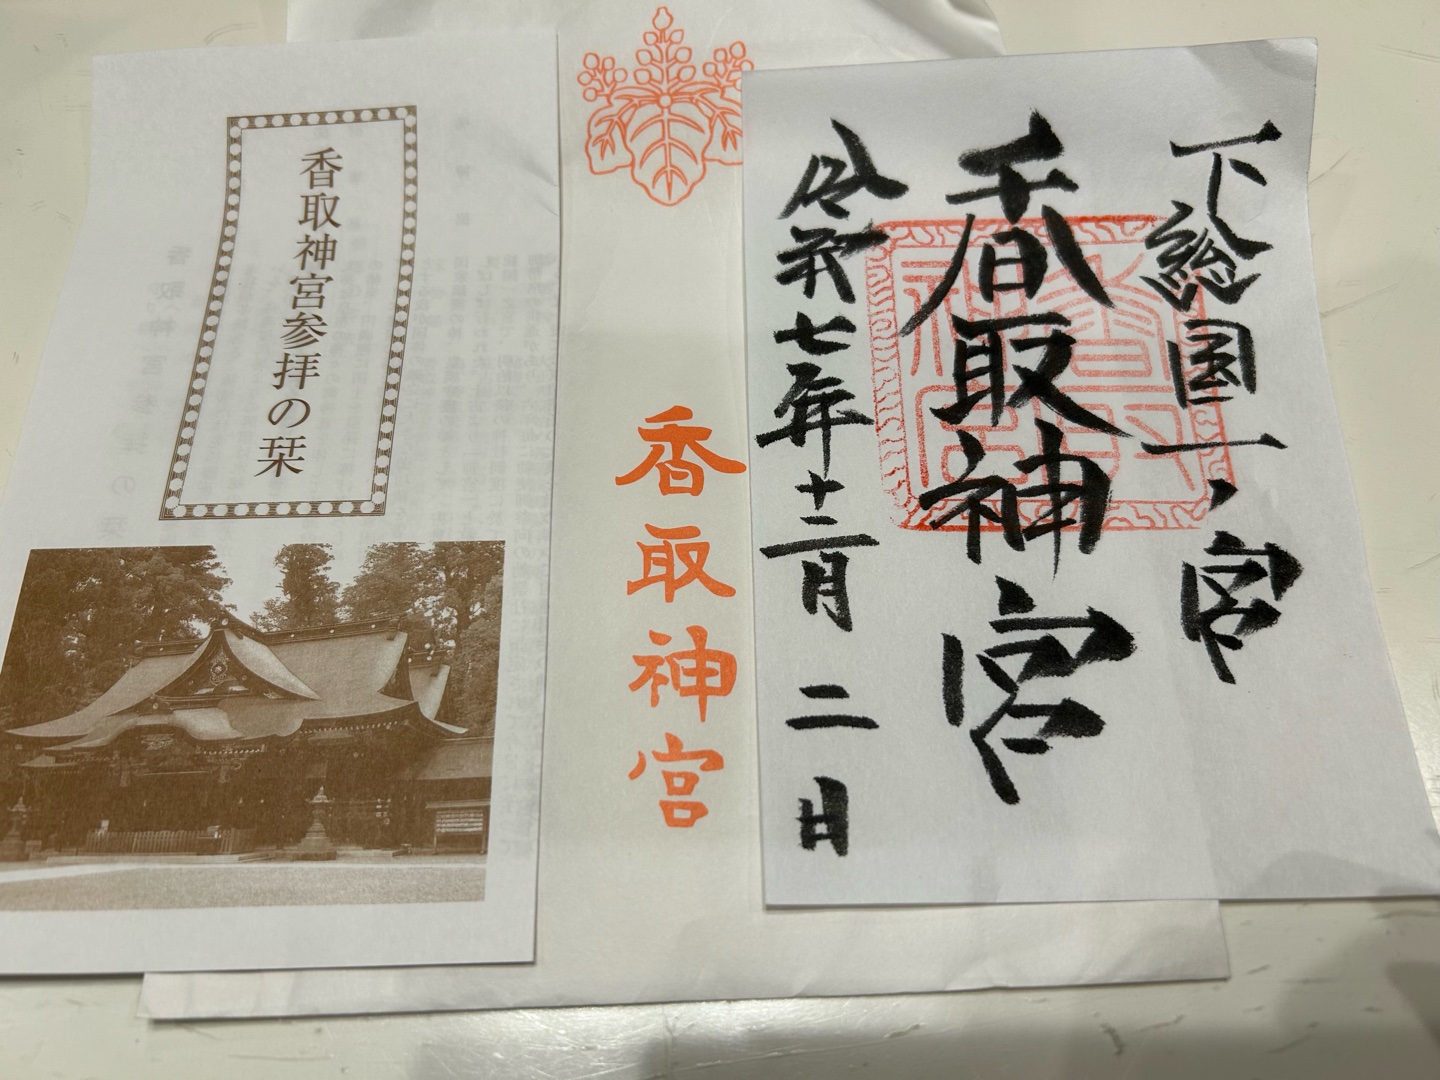 下総国一ノ宮
香取神宮
令和七年十二月二日
香取神宮
香取神宮
香取神宮参拝の栞